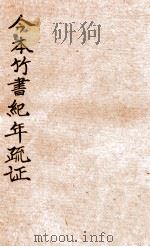 今本竹書紀年疏证
mtoou.info